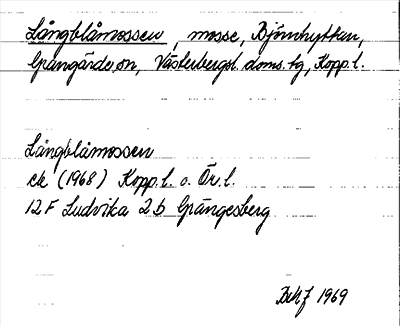 Långblåmossen, mosse, Björnhyttan,
Grangärde sn, Västerbergsl. doms. tg, Kopp.l.
Långblåmossen
ek (1968) Kopp.l. o. Ör.l.
12F Ludvika 2b Grängesberg
1969